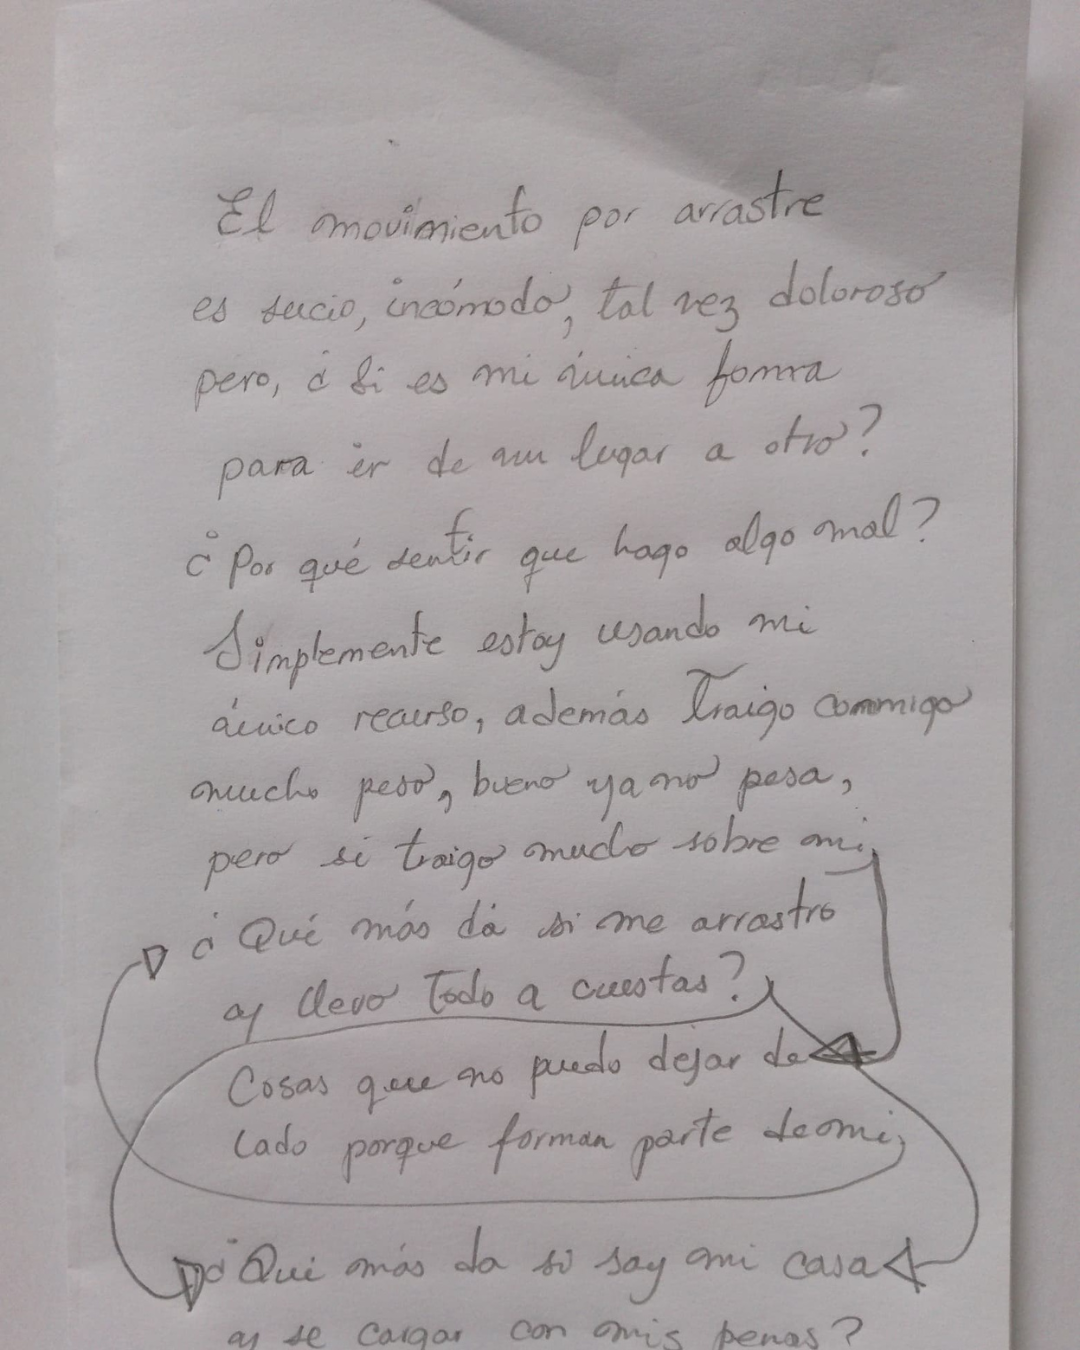 El movimiento por arrastre
es sucio, incómodo, tal vez doloroso
pero, ¿Si es mi única fomra
para ir de un lugar a otro?
¿Por qué sentir que hago algo mal?
Simplemente estoy usando mi
único recurso, además Traigo conmigo
mucho peso, bueno ya no pesa,
pero si traigo mucho sobre mi,
¿Qué más dá si me arrastro
y llevo Todo a cuestas?
Cosas que no puedo dejar de
lado porque forman parte de mi,
¿Qué más da si soy mi casa
y se cargar con mis penas?